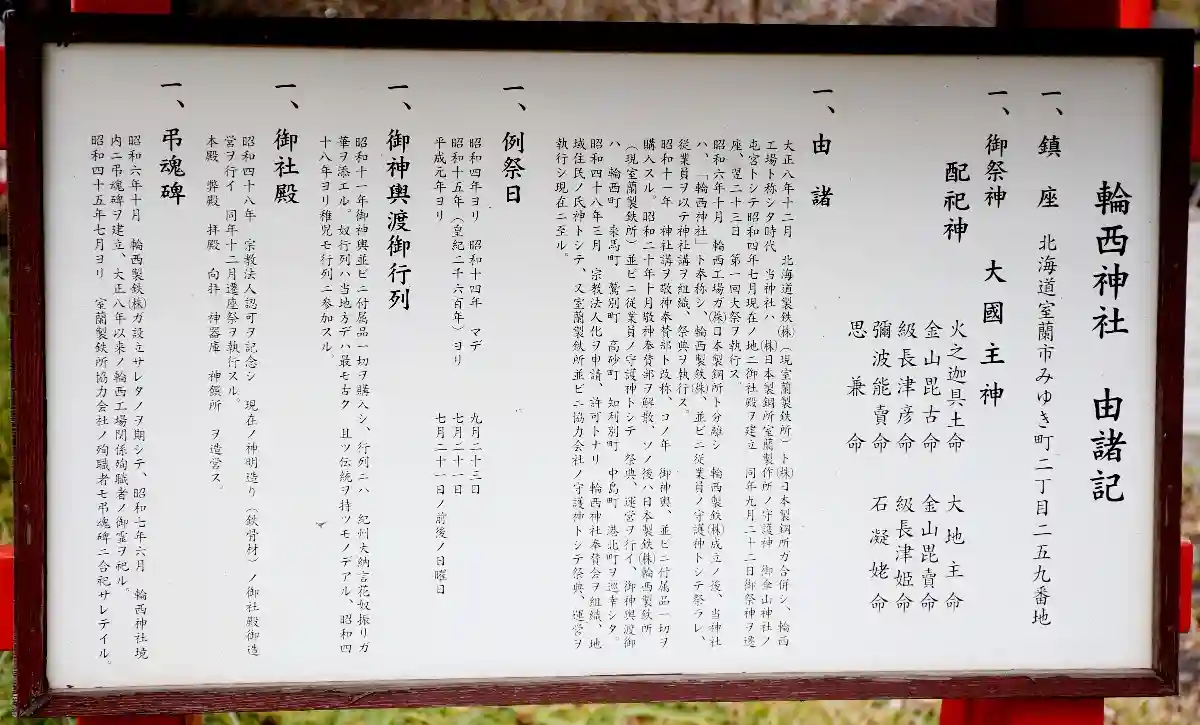 輪西神社 由諸記
一、鎮座 北海道室蘭市みゆき町二丁目二五九番地
一、御祭神 大國主神
配祀神 火之迦具土命 大地主命
金山毘古命 金山毘賣命
級長津彦命 級長津姫命
彌波能賣命 石凝姥命
思兼命
一、由諸
大正八年十二月 北海道製鉄㈱(現室蘭製鉄所)ト㈱日本製鋼所ガ合併シ、輪西
工場ト称シタ時代 当神社ハ ㈱日本製鋼所室蘭製作所ノ守護神 御傘山神社ノ
屯宮トシテ昭和四年七月現在ノ地ニ御社殿ヲ建立 同年九月二十二日御祭神ヲ遷
座、翌二十三日 第一回大祭ヲ執行ス。
昭和六年十月 輪西工場ガ㈱日本製鋼所ト分離シ 輪西製鉄㈱成立ノ後、当神社
ハ、「輪西神社」ト奉称シ、輪西製鉄㈱、並ビニ従業員ノ守護神トシテ祭ラレ、
従業員ヲ以テ神社講ヲ組織、祭典ヲ執行ス。
昭和十一年 神社講ヲ敬神奉賛部ト改称、コノ年 御神輿、並ビニ付属品一切ヲ
購入スル。昭和二十年十月敬神奉賛部ヲ解散、ソノ後ハ日本製鉄㈱輪西製鉄所
(現室蘭製鉄所)並ビニ従業員ノ守護神トシテ 祭典、運営ヲ行イ、御神輿渡御
ハ、輪西町 東馬町 鷲別町 高砂町 知利別町 中島町 港北町ヲ巡幸シタ。
昭和四十八年三月 宗教法人化ヲ申請、許可トナリ 輪西神社奉賛会ヲ組織、地
域住民ノ氏神トシテ、又室蘭製鉄所並ビニ協力会社ノ守護神トシテ祭典、運営ヲ
執行シ現在ニ至ル。
一、例祭日
昭和四年ヨリ 昭和十四年 マデ 九月二十三日
昭和十五年(皇紀二千六百年)ヨリ 七月二十一日
平成元年ヨリ 七月二十一日ノ前後ノ日曜日
一、御神輿渡御行列
昭和十一年御神輿並ビニ付属品一切ヲ購入シ、行列ニハ 紀州大納言花奴振リガ
華ヲ添エル。奴行列ハ当地方デハ最モ古ク 且ツ伝統ヲ持ツモノデアル、昭和四
十八年ヨリ稚児モ行列ニ参加スル。
一、御社殿
昭和四十八年 宗教法人認可ヲ記念シ 現在ノ神明造リ(鉄骨材)ノ御社殿御造
営ヲ行イ 同年十二月遷座祭ヲ執行スル。
本殿 弊殿 拝殿 向拝 神器庫 神饌所 ヲ造営ス。
一、弔魂碑
昭和六年十月 輪西製鉄㈱ガ設立サレタノヲ期シテ、昭和七年六月 輪西神社境
内ニ弔魂碑ヲ建立、大正八年以来ノ輪西工場関係殉職者ノ御霊ヲ祀ル。
昭和四十五年七月ヨリ 室蘭製鉄所協力会社ノ殉職者モ弔魂碑ニ合祀サレテイル。